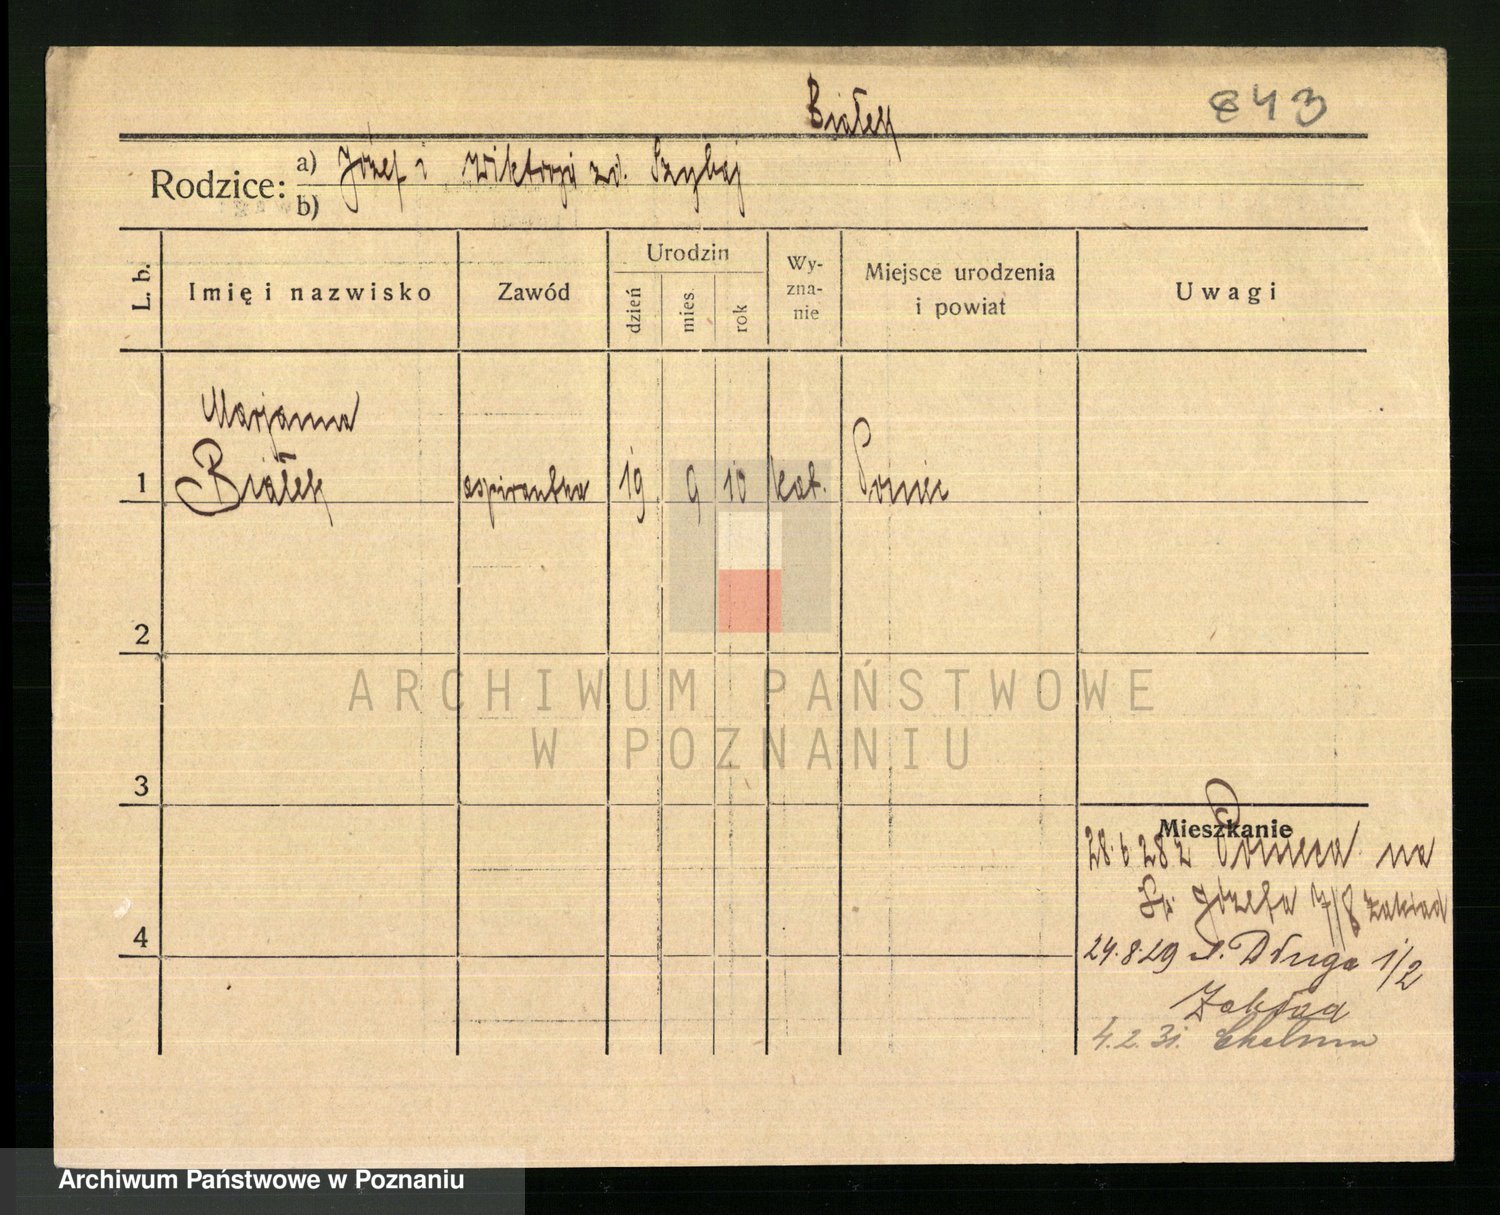 Białek
843
Rodzice: a) Józef i Wiktorja zd. Szybaj
b)
L. b. Imię i nazwisko Zawód Urodzin dzień mies. rok Wy-zna-nie Miejsce urodzenia i powiat Uwagi
Marjanna
1 Białek aspirantka 19 9 10 kat. Poniec
2
ARCHIWUM PAŃSTWOWE
W POZNANIU
3
Mieszkanie
28.6 28 z Ponieca na
Św. Józefa 7/8 zakład
4
24.8.29 ul. Długa 1/2
Zakład
4.2.31. Chełmno
Archiwum Państwowe w Poznaniu